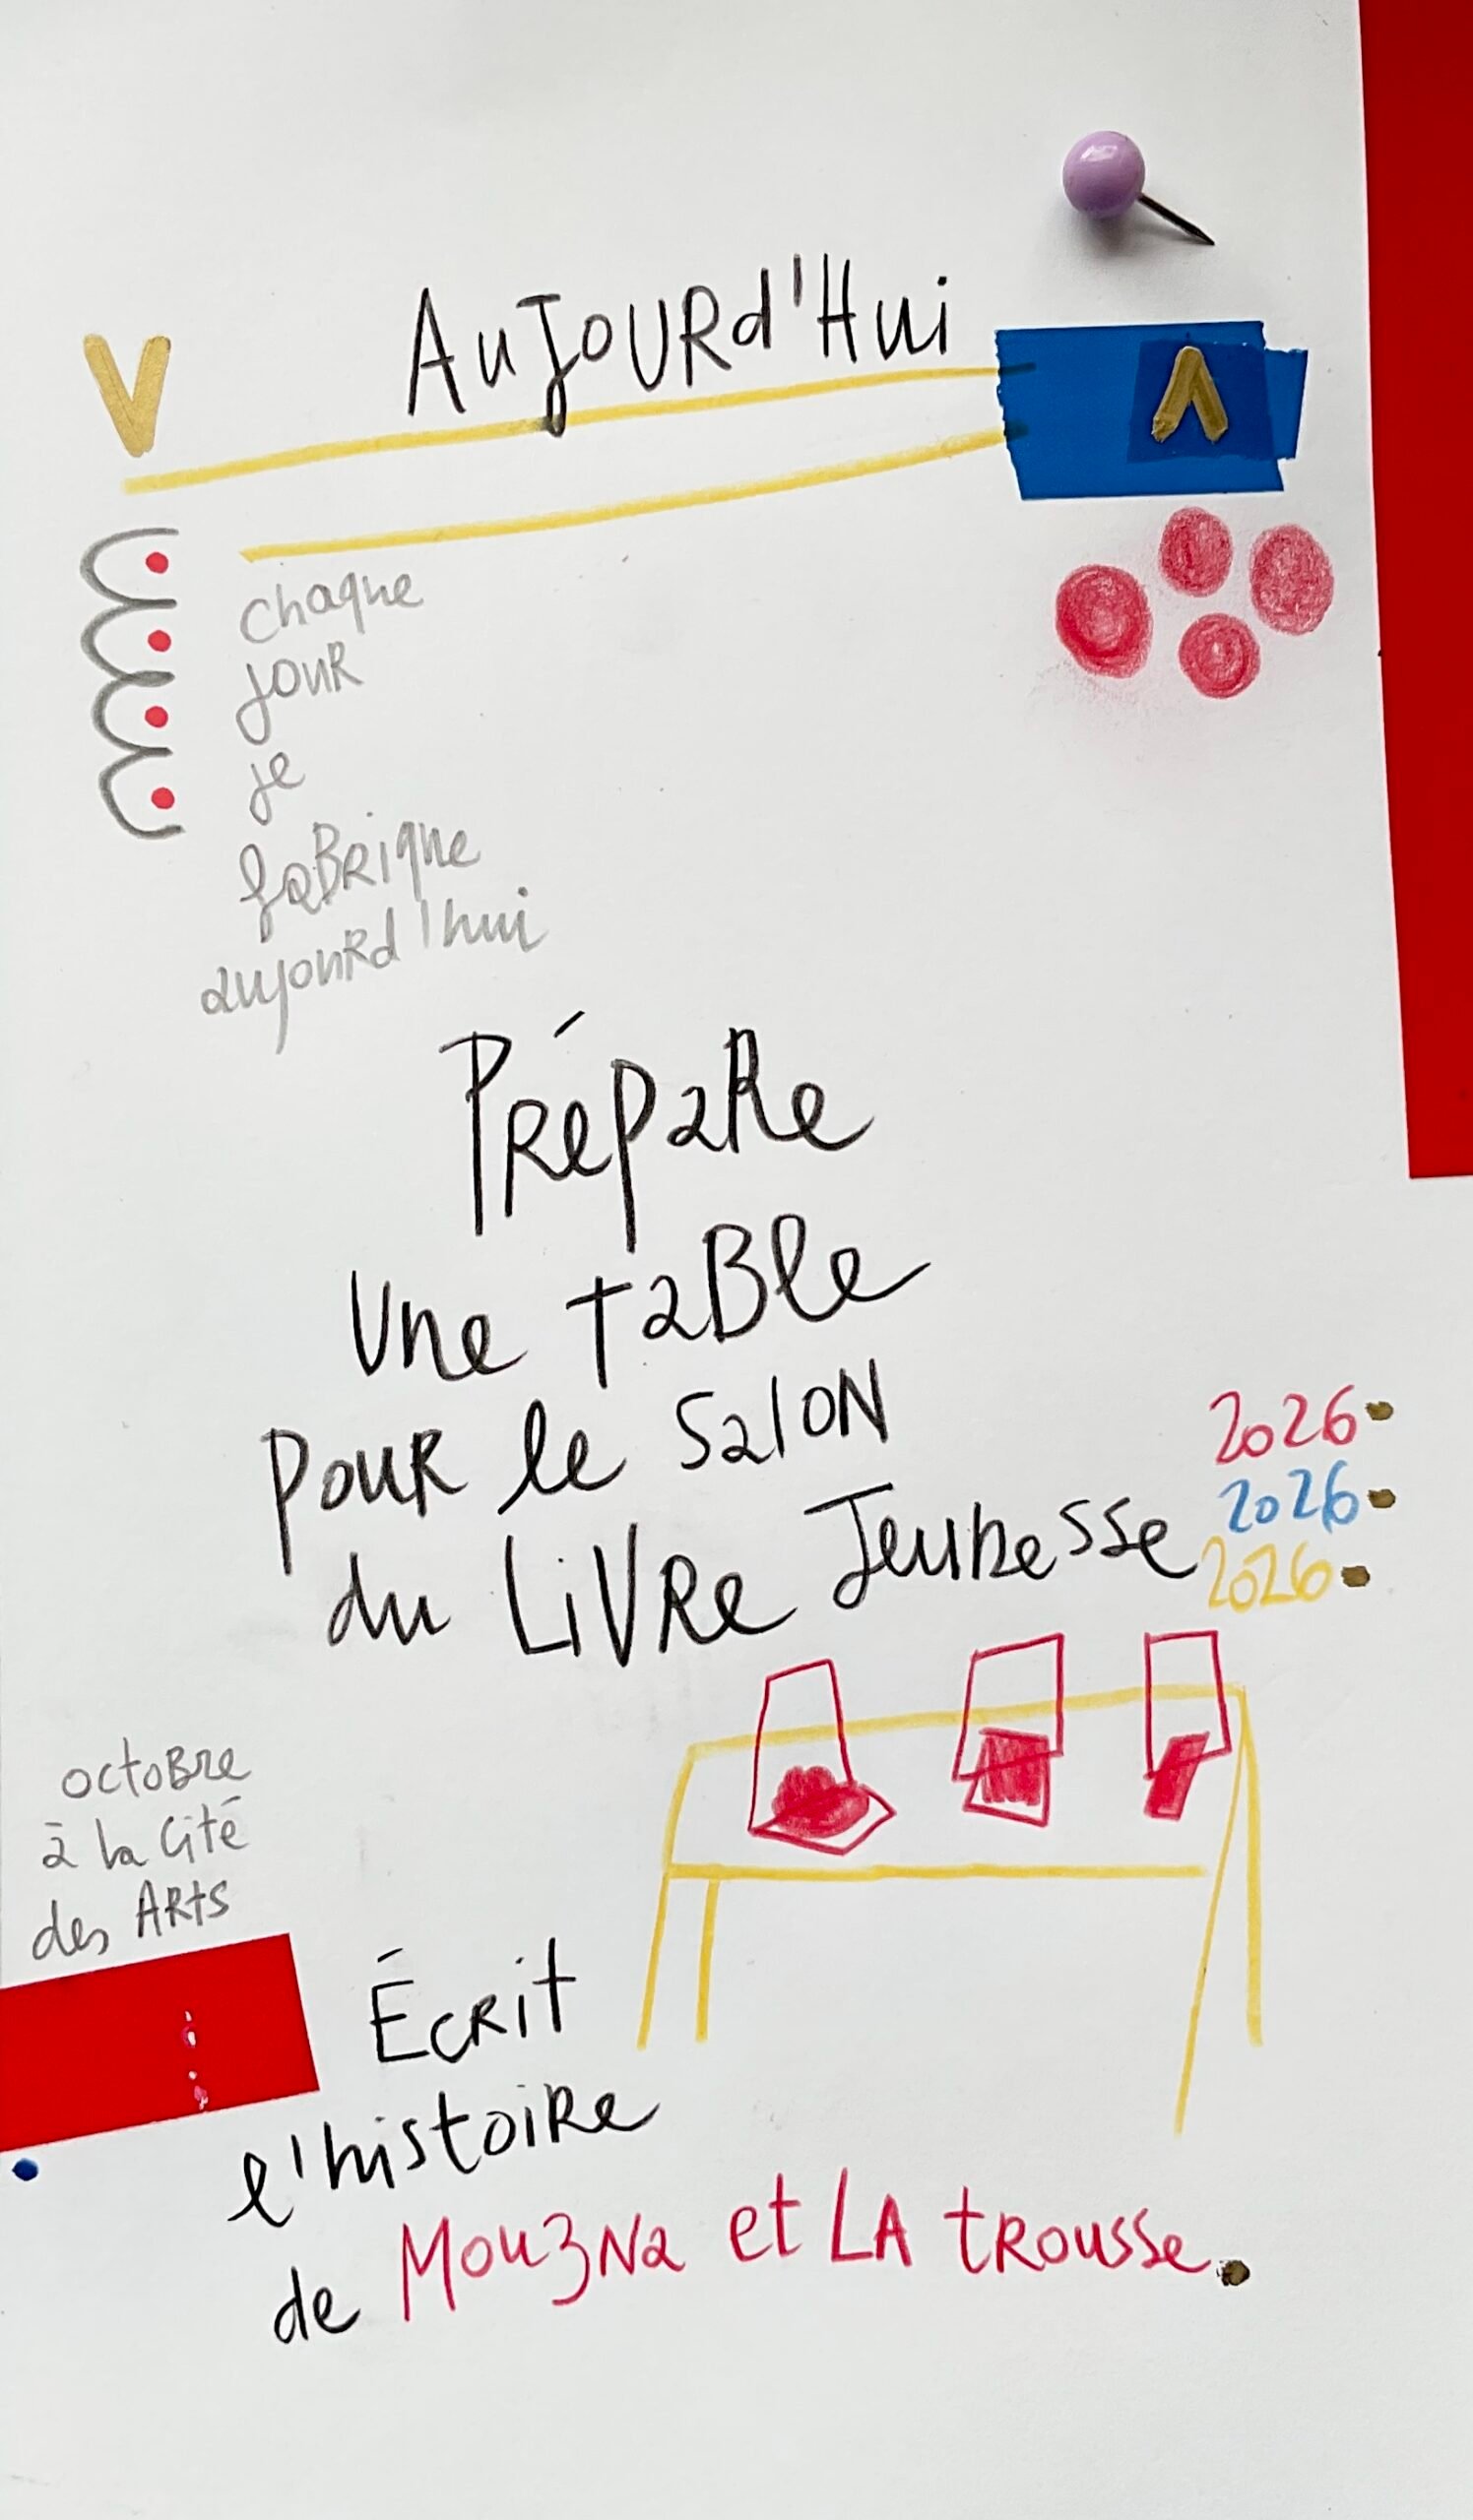 V
AuJOURd'Hui
Λ
chaque
jour
je
faBRique
aujouRd'hui
PRépaRe
Une taBle
pouR le SalON
du LiVRe Jeunesse
2026
2026
2026
octoBre
à la Cité
des ARts
ÉcRit
l'histoiRe
de MouзNa et LA tRousse.